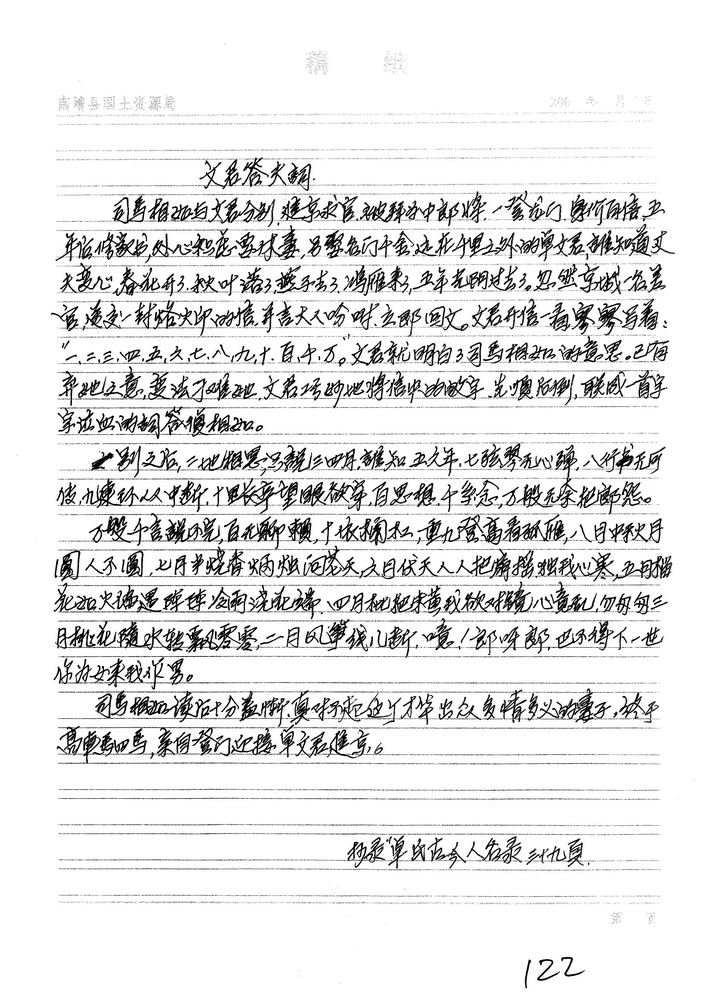 稿 纸
南靖县国土资源局 200 年 月 日
文君答夫词.
司马相如与文君分别,进京求官,被拜为中郎将,一登龙门,身价百倍,五
年后修家书,外心积忘妻,另娶名门千金,远在千里之外的单文君,谁知道丈
夫变心,春花开了,秋叶落了,燕子去了,鸿雁来了,五年光阴过去了。忽然京城一名差
官,送交一封烙火印的信,并言大人吩咐,立即回文。文君开信一看,寥寥写着:
“一、二、三、四、五、六、七、八、九、十、百、千、万。”文君就明白了司马相如的意思。已有
弃她之意,变法刁难她,文君巧妙地将信中的数字,先顺后倒,联成一首字
字泣血的词答复相如。
一别之后,二地相思,只说三四月,谁知五六年,七弦琴无心弹,八行书无可
传,九连环从中断,十里长亭望眼欲穿,百思想,千系念,万般无奈把郎怨。
万般千言说不完,百无聊赖,十依栏杠,重九登高看孤雁,八月中秋月
圆人不圆,七月半烧香炳烛问苍天,六月伏天人人把扇摇独我心寒,五月榴
花如火偏遇阵阵冷雨浇花端,四月枇杷未黄我欲对镜心意乱,匆匆三
月桃花随水转飘零零,二月风筝线儿断,噫!郎呀郎,巴不得下一世
你为女来我作男。
司马相如读后十分羞惭,真对不起这个才华出众多情多义的妻子,终于
高车驷马,亲自登门迎接单文君进京。
抄录“单氏古今人名录 三十九頁.
第 页
122